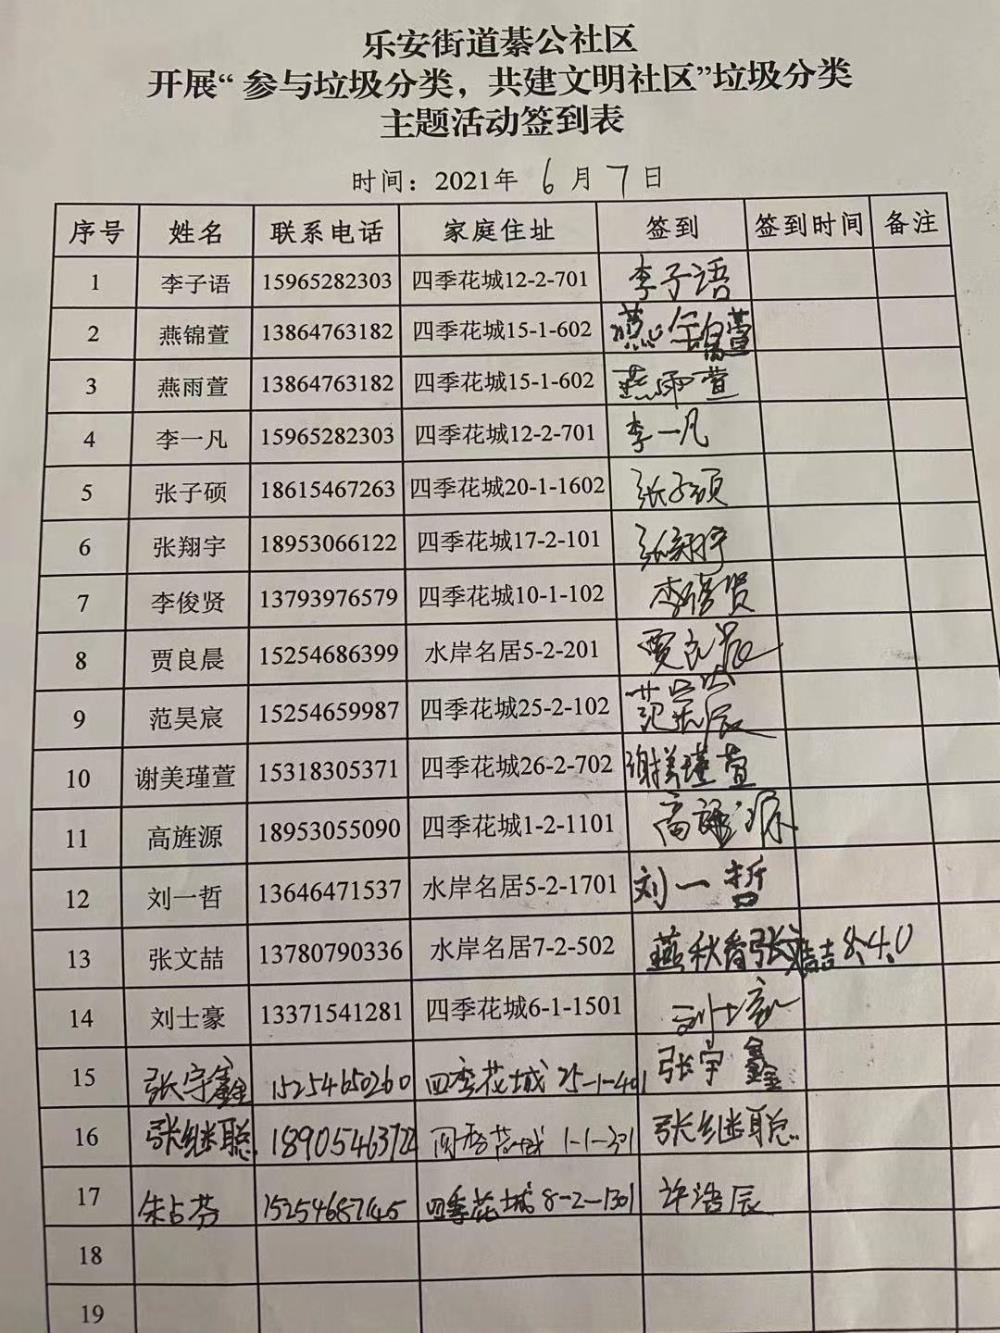 乐安街道綦公社区
开展“参与垃圾分类，共建文明社区”垃圾分类
主题活动签到表
时间：2021年 6 月 7 日
序号 姓名 联系电话 家庭住址 签到 签到时间 备注
1 李子语 15965282303 四季花城12-2-701 李子语
2 燕锦萱 13864763182 四季花城15-1-602 燕锦萱
3 燕雨萱 13864763182 四季花城15-1-602 燕雨萱
4 李一凡 15965282303 四季花城12-2-701 李一凡
5 张子硕 18615467263 四季花城20-1-1602 张子硕
6 张翔宇 18953066122 四季花城17-2-101 张翔宇
7 李俊贤 13793976579 四季花城10-1-102 李俊贤
8 贾良晨 15254686399 水岸名居5-2-201 贾良晨
9 范昊宸 15254659987 四季花城25-2-102 范昊宸
10 谢美瑾萱 15318305371 四季花城26-2-702 谢美瑾萱
11 高旌源 18953055090 四季花城1-2-1101 高旌源
12 刘一哲 13646471537 水岸名居5-2-1701 刘一哲
13 张文喆 13780790336 水岸名居7-2-502 燕秋香张文喆 8:40
14 刘士豪 13371541281 四季花城6-1-1501 刘士豪
15 张宇鑫 15254650260 四季花城 25-1-401 张宇鑫
16 张继聪 18905463722 四季花城 1-1-301 张继聪
17 朱占芬 15254687145 四季花城 8-2-1301 许浩辰
18
19